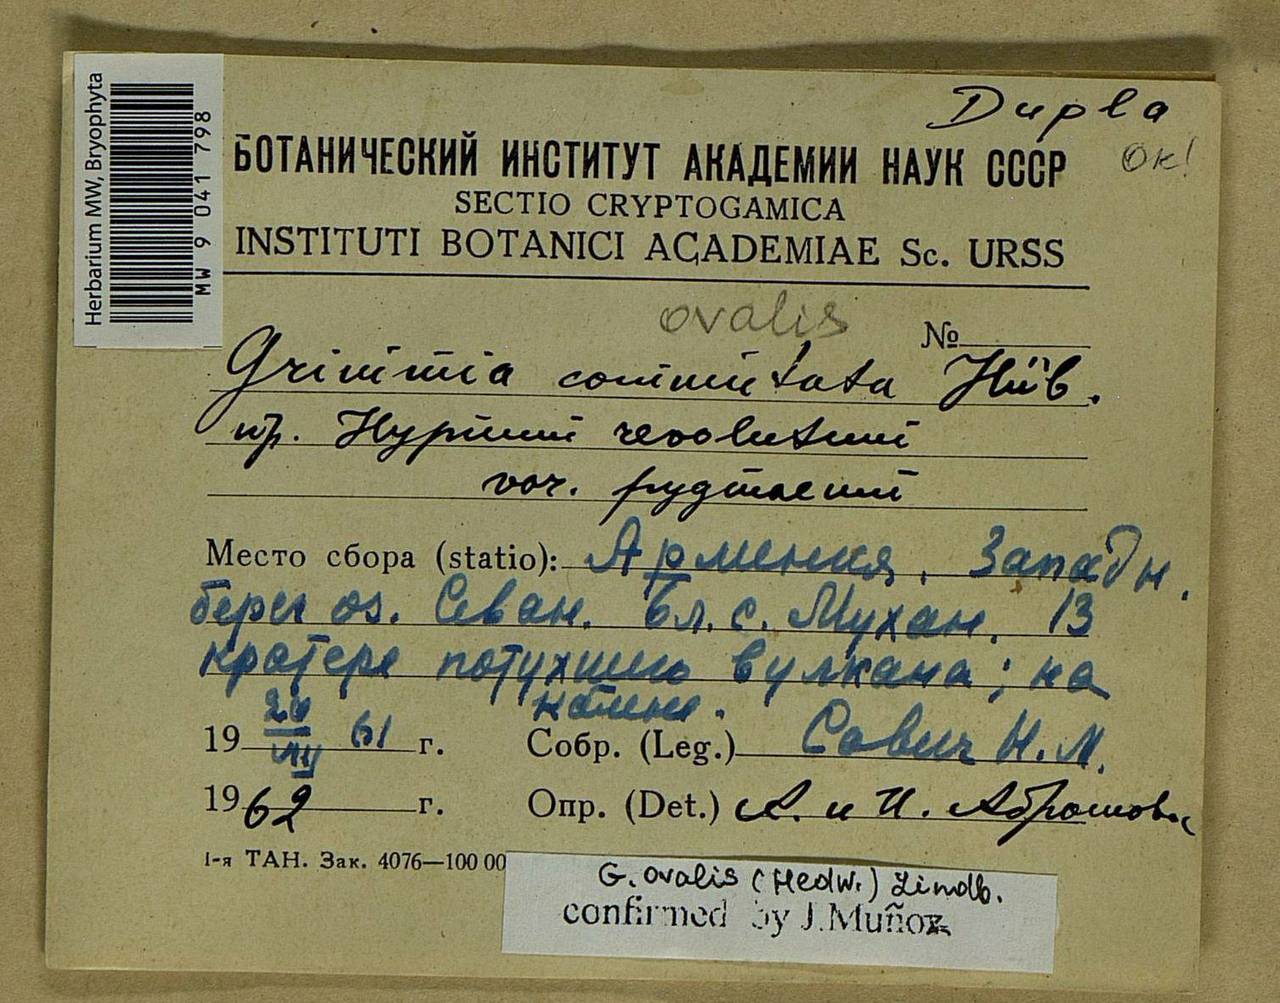 Herbarium MW, Bryophyta
MW 9 041 798
Dupla
ок!
БОТАНИЧЕСКИЙ ИНСТИТУТ АКАДЕМИИ НАУК СССР
SECTIO CRYPTOGAMICA
INSTITUTI BOTANICI ACADEMIAE Sc. URSS
ovalis
№
Grimmia commutata Hüb.
пр. Hypnum revolutum
var. pygmaeum
Место сбора (statio): Армения, Западн.
берег оз. Севан. Бл. с. Мухан. В
кратере потухшего вулкана; на
камне.
19 VII 61 г. Собр. (Leg.) Савич Н. М.
1962 г. Опр. (Det.) А. и И. Абрамовы
1-я ТАН. Зак. 4076—100 00
G. ovalis (Hedw.) Lindb.
confirmed by J. Muñoz